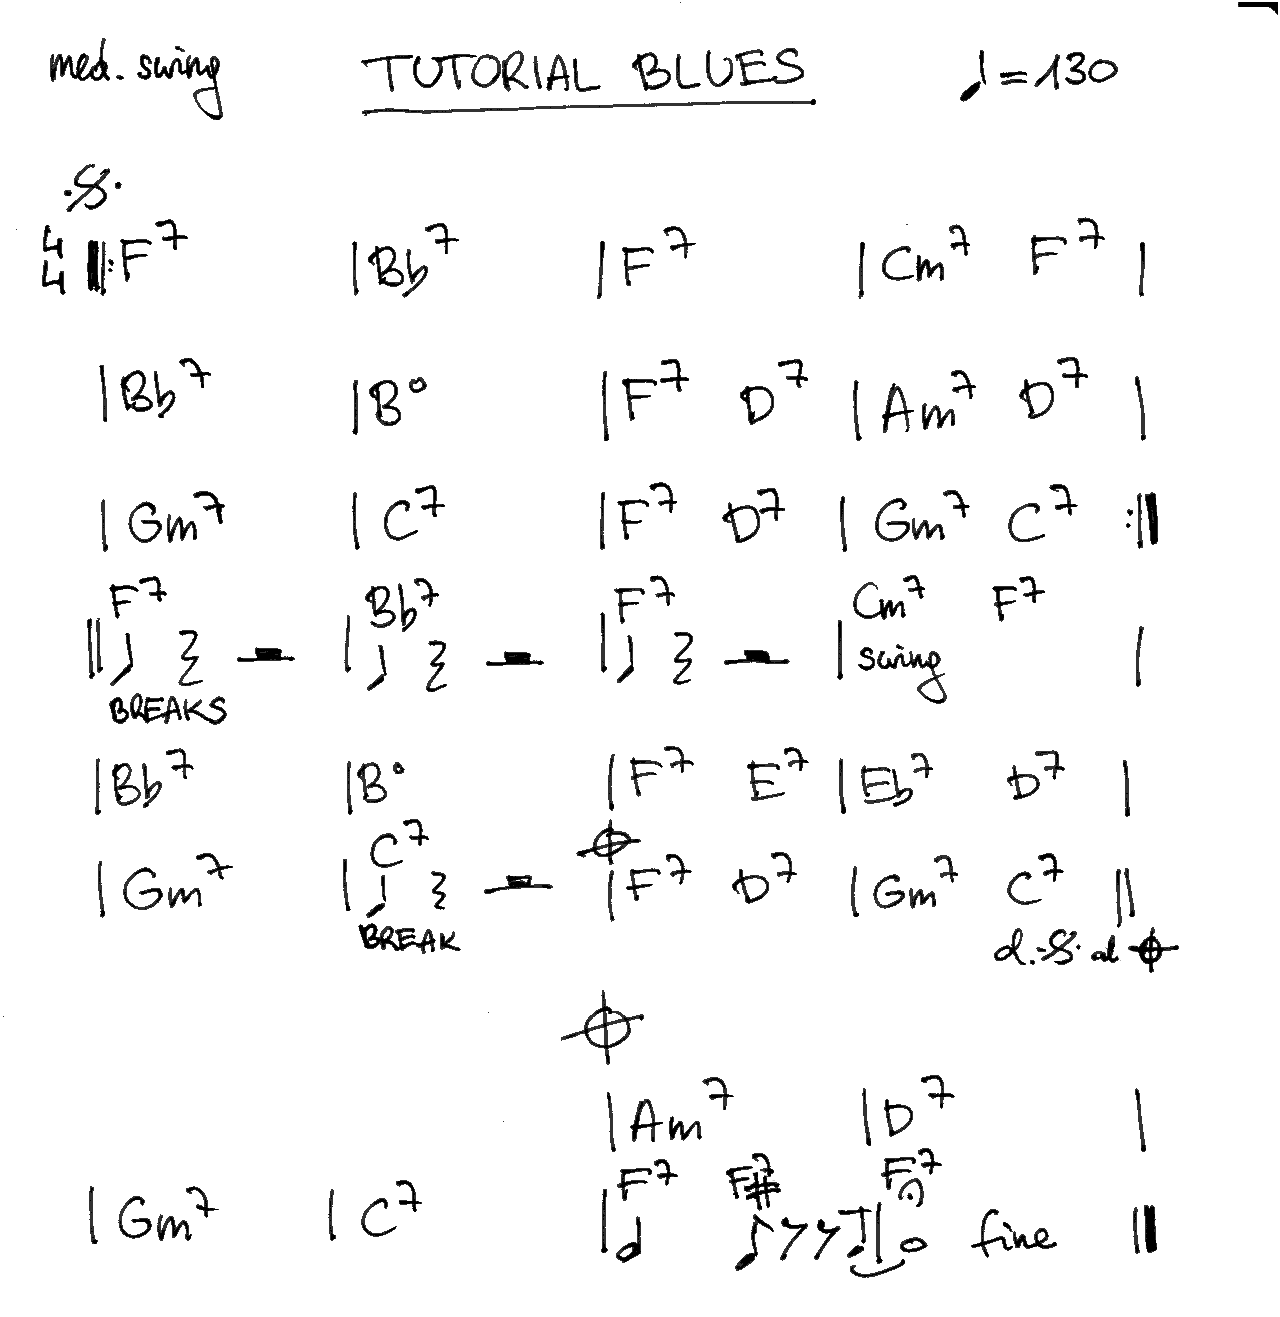 med. swing TUTORIAL BLUES ♩=130
𝄋
4/4 𝄆 F7 | Bb7 | F7 | Cm7 F7 |
| Bb7 | B° | F7 D7 | Am7 D7 |
| Gm7 | C7 | F7 D7 | Gm7 C7 𝄇
F7 Bb7 F7 Cm7 F7
|| ♩ 𝄽 𝄼 | ♩ 𝄽 𝄼 | ♩ 𝄽 𝄼 | swing |
BREAKS
| Bb7 | B° | F7 E7 | Eb7 D7 |
C7 𝄌
| Gm7 | ♩ 𝄽 𝄼 | F7 D7 | Gm7 C7 ||
BREAK d.𝄋. al 𝄌
𝄌
| Am7 | D7 |
F7 F#7 F7
| Gm7 | C7 | 𝅗𝅥 ♪ 𝄾 𝄾 ♪ | 𝅝 fine ||